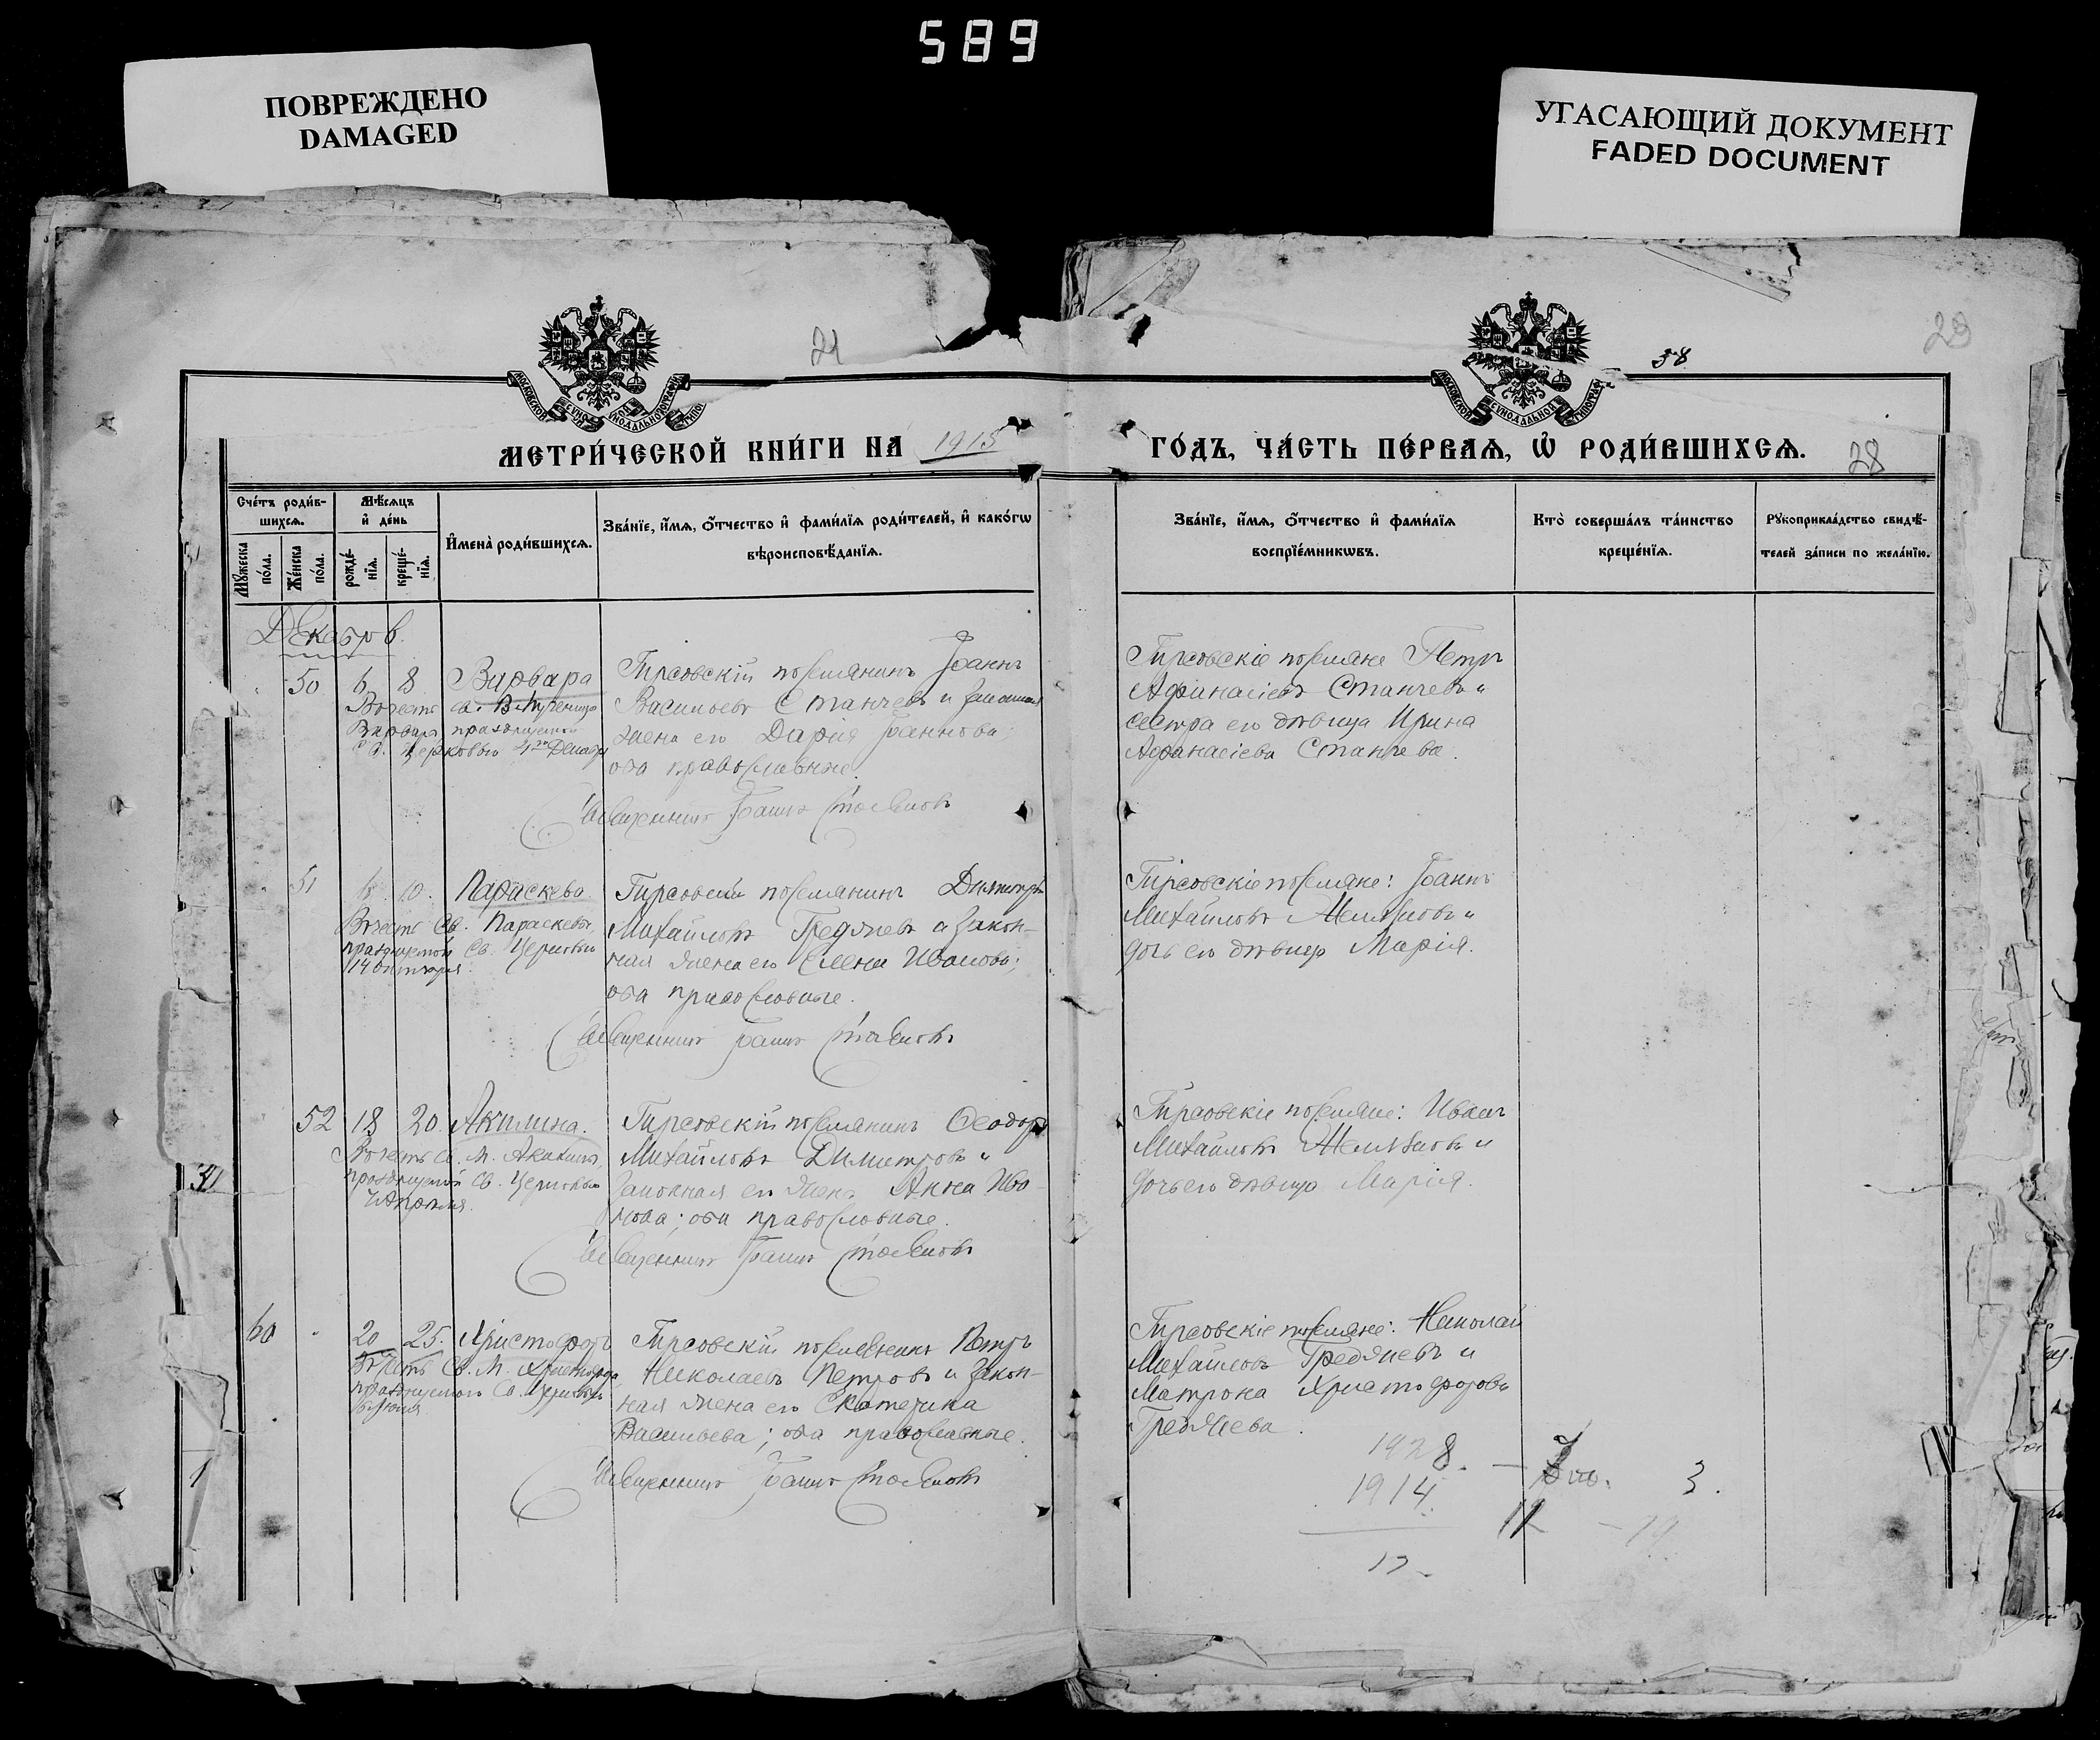 589
ПОВРЕЖДЕНО
DAMAGED
УГАСАЮЩИЙ ДОКУМЕНТ
FADED DOCUMENT
21
58
29
МЕТРИ́ЧЕСКОЙ КНИ́ГИ НА 1915
ГО́ДЪ, ЧА́СТЬ ПЕ́РВАѦ, Ѡ҆ РОДИ́ВШИХСѦ.
28
Сче́тъ роди́в-
шихсѧ.
Мѣ́сѧцъ
и҆ де́нь
Мꙋ́жеска
по́ла.
Же́нска
по́ла.
рожде́-
нїѧ.
креще́-
нїѧ.
И҆мена̀ роди́вшихсѧ.
Зва́нїе, и҆́мѧ, ѻ҆́тчество и҆ фами́лїѧ роди́телей, и҆ како́гѡ
вѣроисповѣ́данїѧ.
Зва́нїе, и҆́мѧ, ѻ҆́тчество и҆ фами́лїѧ
воспрїе́мникѡвъ.
Кто̀ соверша́лъ та́инство
креще́нїѧ.
Рꙋкоприкла́дство свидѣ́-
телей за́писи по жела́нїю.
Декабрь
50 6 8 Варвара
Въ честь св. В. Мученицы
Варвары празднуемой
св. Церковью 4го Декабря
Гирсовскій поселянинъ Іоаннъ
Васильевъ Станчевъ и законная
жена его Дарія Іоаннова;
оба православные.
Священникъ Іоаннъ
Гирсовскіе поселяне Петръ
Афанасіевъ Станчевъ и
сестра его дѣвица Ирина
Афанасіева Станчева.
51 6 10 Параскева
Въ честь Св. Параскевы,
празднуемой Св. Церковью
14 Октября.
Гирсовскій поселянинъ Димитрій
Михайловъ Гредяневъ и закон-
ная жена его Елена Иванова;
оба православные.
Священникъ Іоаннъ
Гирсовскіе поселяне: Іоаннъ
Михайловъ Желязковъ и
дочь его дѣвица Марія.
52 18 20 Акилина.
Въ честь Св. М. Акилины,
празднуемой Св. Церковью
7 Апрѣля.
Гирсовскій поселянинъ Ѳеодоръ
Михайловъ Димитровъ и
законная его жена Анна Ива-
нова; оба православные.
Священникъ Іоаннъ
Гирсовскіе поселяне: Иванъ
Михайловъ Желязковъ и
дочь его дѣвица Марія.
60 20 25. Христофоръ
Въ честь Св. М. Христофора
празднуемаго Св. Церковью
Гирсовскій поселянинъ Петръ
Николаевъ Петровъ и закон-
ная жена его Екатерина
Васильева; оба православные.
Священникъ Іоаннъ
Гирсовскіе поселяне: Николай
Михайловъ Гредяневъ и
Матрона Христофорова
Гредянева.
1928. 3.
1914. 11 - 19